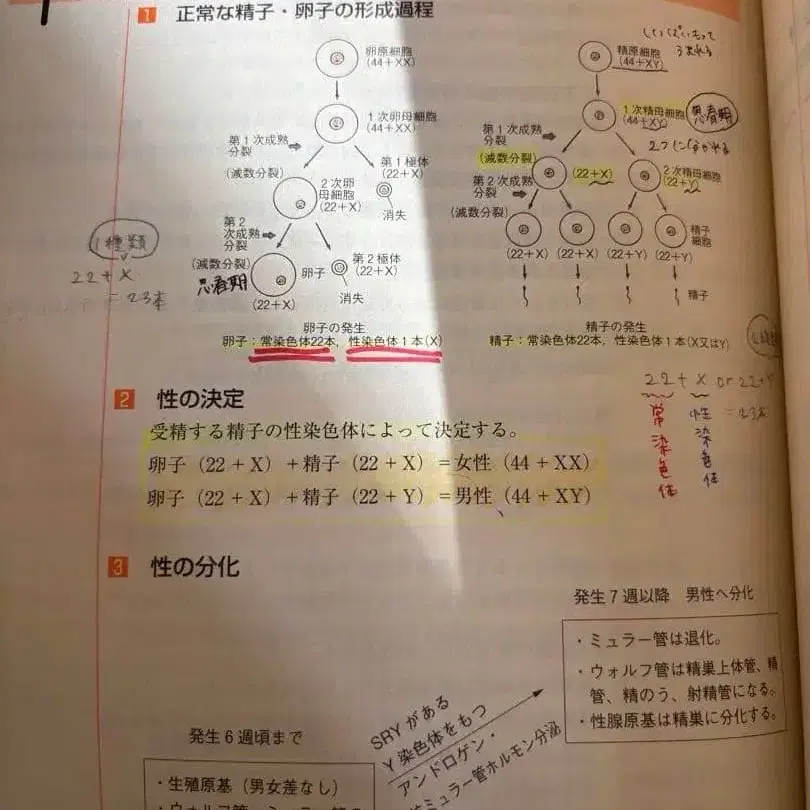 1 正常な精子・卵子の形成過程
卵原細胞
(44+XX)
1次卵母細胞
(44+XX)
第1次成熟
分裂
(減数分裂)
第1極体
(22+X)
2次卵
母細胞
(22+X)
消失
第2
次成熟
分裂
(減数分裂)
思春期
卵子
(22+X)
第2極体
(22+X)
消失
卵子の発生
卵子:常染色体22本,性染色体1本(X)
1種類
22+X
=23本
精原細胞
(44+XY)
1次精母細胞
(44+XY)
思春期
第1次成熟
分裂
(減数分裂)
(22+X)
2次精母細胞
(22+Y)
第2次成熟
分裂
(減数分裂)
精子
細胞
(22+X)
(22+X)
(22+Y)
(22+Y)
精子
精子の発生
精子:常染色体22本,性染色体1本(X又はY)
22+X or 22+Y
=23本
常染色体
性染色体
2 性の決定
受精する精子の性染色体によって決定する。
卵子(22+X)+精子(22+X)=女性(44+XX)
卵子(22+X)+精子(22+Y)=男性(44+XY)
3 性の分化
発生7週以降 男性へ分化
・ミュラー管は退化。
・ウォルフ管は精巣上体管、精
管、精のう、射精管になる。
・性腺原基は精巣に分化する。
SRYがある
Y染色体をもつ
アンドロゲン・
ミュラー管ホルモン分泌
発生6週頃まで
・生殖原基(男女差なし)